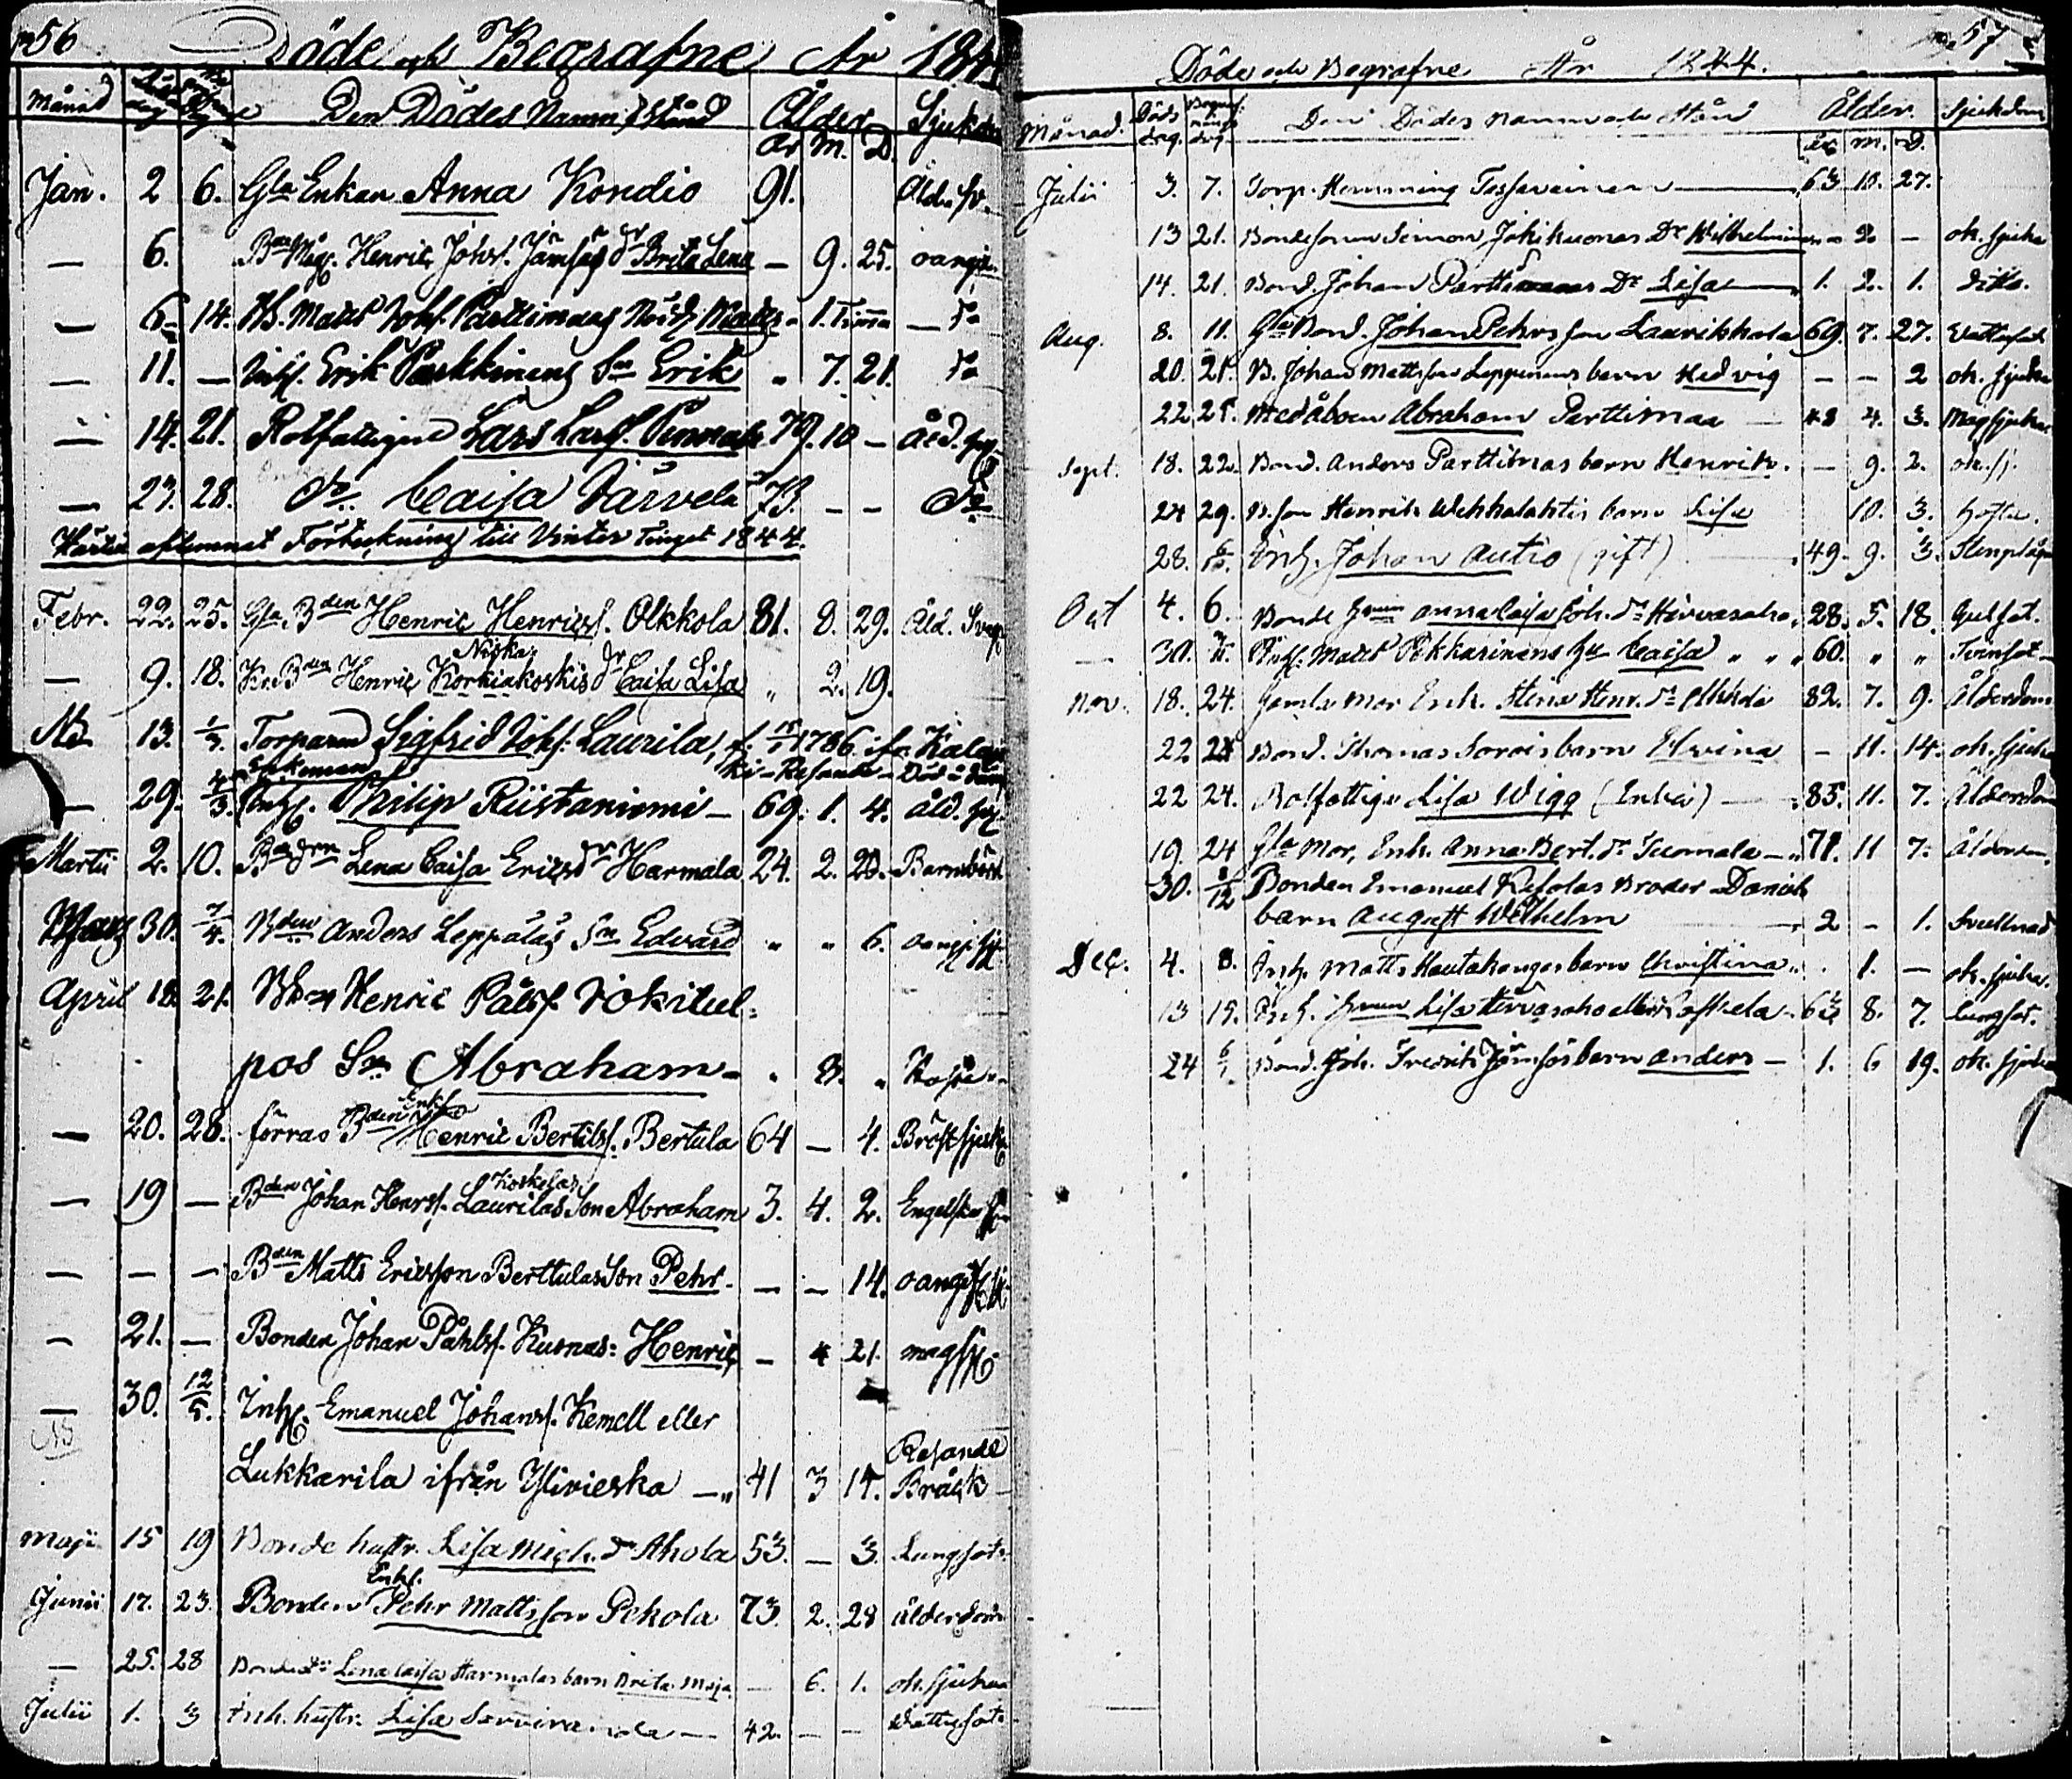 56
Döde och Begrafne År 184
Månad Den Dödes Namn, Stånd Ålder Sjukd
År M. D.
Jan. 2 6. Gla Enkan Anna Kondio 91.
— 6. Henric Johs. Jämsäs dr Brita Lena — 9. 25. oangif
— 6. 14. Matts Joh. Parttimaas Matts 1. Timma — do
— 11. — Inhs. Erik Parkkinens Sn Erik " 7. 21. do
— 14. 21. Rotfattigen Lars Larss. 79. 10 — Åld.
— 23. 28. do. Caisa Järvelä 73. — — do
Härtill aflemnat Förteckning till Vinter Tinget 1844.
Febr. 22. 25. Gla Bden Henric Henricss. Olkkola 81. 8. 29. Åld.
Niska
— 9. 18. Bden Henric Korkiakoskis dr Caisa Lisa " 2. 19.
NB 13. 1/3. Torparen Sigfrid Johs. Laurila, f. 15/1 1786. ifr. Kalaj
Enkeman
— 29. 4/3. Inhs. Philip Riistaniemi — 69. 1. 4. åld.
Martii 2. 10. Lena Caisa Ericsdr Harmala 24. 2. 23. Barnsbörd
Mars 30. 7/4. Bden Anders Leppäläs Sn Edvard " " 6. oangif
April 18. 21. Henric Påls. Jokitul-
pos Sn Abraham - . 8. "
Enkl
— 20. 28. förra Bden Henric Bertilss. Bertula 64 — 4. Bröstsjuk
Koskelas
— 19 — Bden Johan Henrss. Laurilas Son Abraham 3. 4. 2. Engelska
— — — Bden Matts Ericsson Berttulas Son Pehr — — 14. oangif
— 21. — Bonden Johan Påhlss. Kuonas: Henric — 4 21. magsj.
— 30. 12/5. Inhs. Emanuel Johanss. Kemell eller
NB
Resande
Lukkarila ifrån Ylivieska — 41 3 14. Bråck
Maji 15 19 Bonde hustr. Lisa Mich. dr Ahola 53. — 3. Lungsot
Enkl.
Junii 17. 23. Bonden Pehr Mattsson Pekola 73. 2. 28 ålderdom
— 25. 28 Lena Caisa Harmalas barn Brita Maja — 6. 1. ok. sjukd
Julii 1. 3 Inh. hustr. Lisa 42. — — Wattusot
57
Döde och Begrafne År 1844.
Månad. Döds dag. Begraf- nings dag Den Dödes namn och Stån Ålder. Sjukdom
År M. D.
Julii 3. 7. Torp. Hemming Tossavainen 63 10. 27.
13 21. Bondesonen Simon Jokikuonas Dr Wilhelmina 2. — ok. sjukd
14. 21. Bond. Johan Parttimaas Dr Lisa 1. 2. 1. ditto.
Aug. 8. 11. Gla Bond. Johan Pehrsson Laurikkala 69. 7. 27. Wattusot
20. 25. B. Johan Mattsson Leppinens barn Hedvig — — 2 ok. sjukd
22 25. Medåboen Abraham Parttimaa 48 4. 3. Magsjukd
Sept. 18. 22. Bond. Anders Parttimas barn Henrik. — 9. 2. ok. sj.
24 29. B. son Henrik Wehkalahtis barn Lisa 10. 3. Hosta.
28. 6/10. Inh. Johan Autio (gift) 49. 9. 3. Stenplåga
Oct 4. 6. Bonde Anna Caisa Joh. dr Hirvasaho 28. 5. 18. Gulsot.
— 30. Inh. Matts Pekkarinens hu Caisa " " 60. " " Tvinsot
Nov. 18. 24. Gamla mor Enk. Stina Henr. dr 82. 7. 9. Ålderdom
22 24 Bond. Thomas Sorvis barn Elvina — 11. 14. ok. sjukd
22 24. Rotfattige Lisa Wigg (Enka) — 85. 11. 7. Ålderdom
19. 24 Gla Mor, Enk. Anna Bert. dr Tuomala — 71. 11 7. Ålderdom
30. 8/12 Bonden Emanuel Broder Daniels
barn August Wilhelm 2 — 1. Svullnad
Dec. 4. 8. Inh. Matts Hautakangas barn Christina . 1. — ok. sjukd.
13 15. Inh. Lisa Hirvasaho eller 63 8. 7. Lungsot.
24 6/1 Bond. Joh. Fredrik Jämsäs barn Anders — 1. 6 19. ok. sjukd